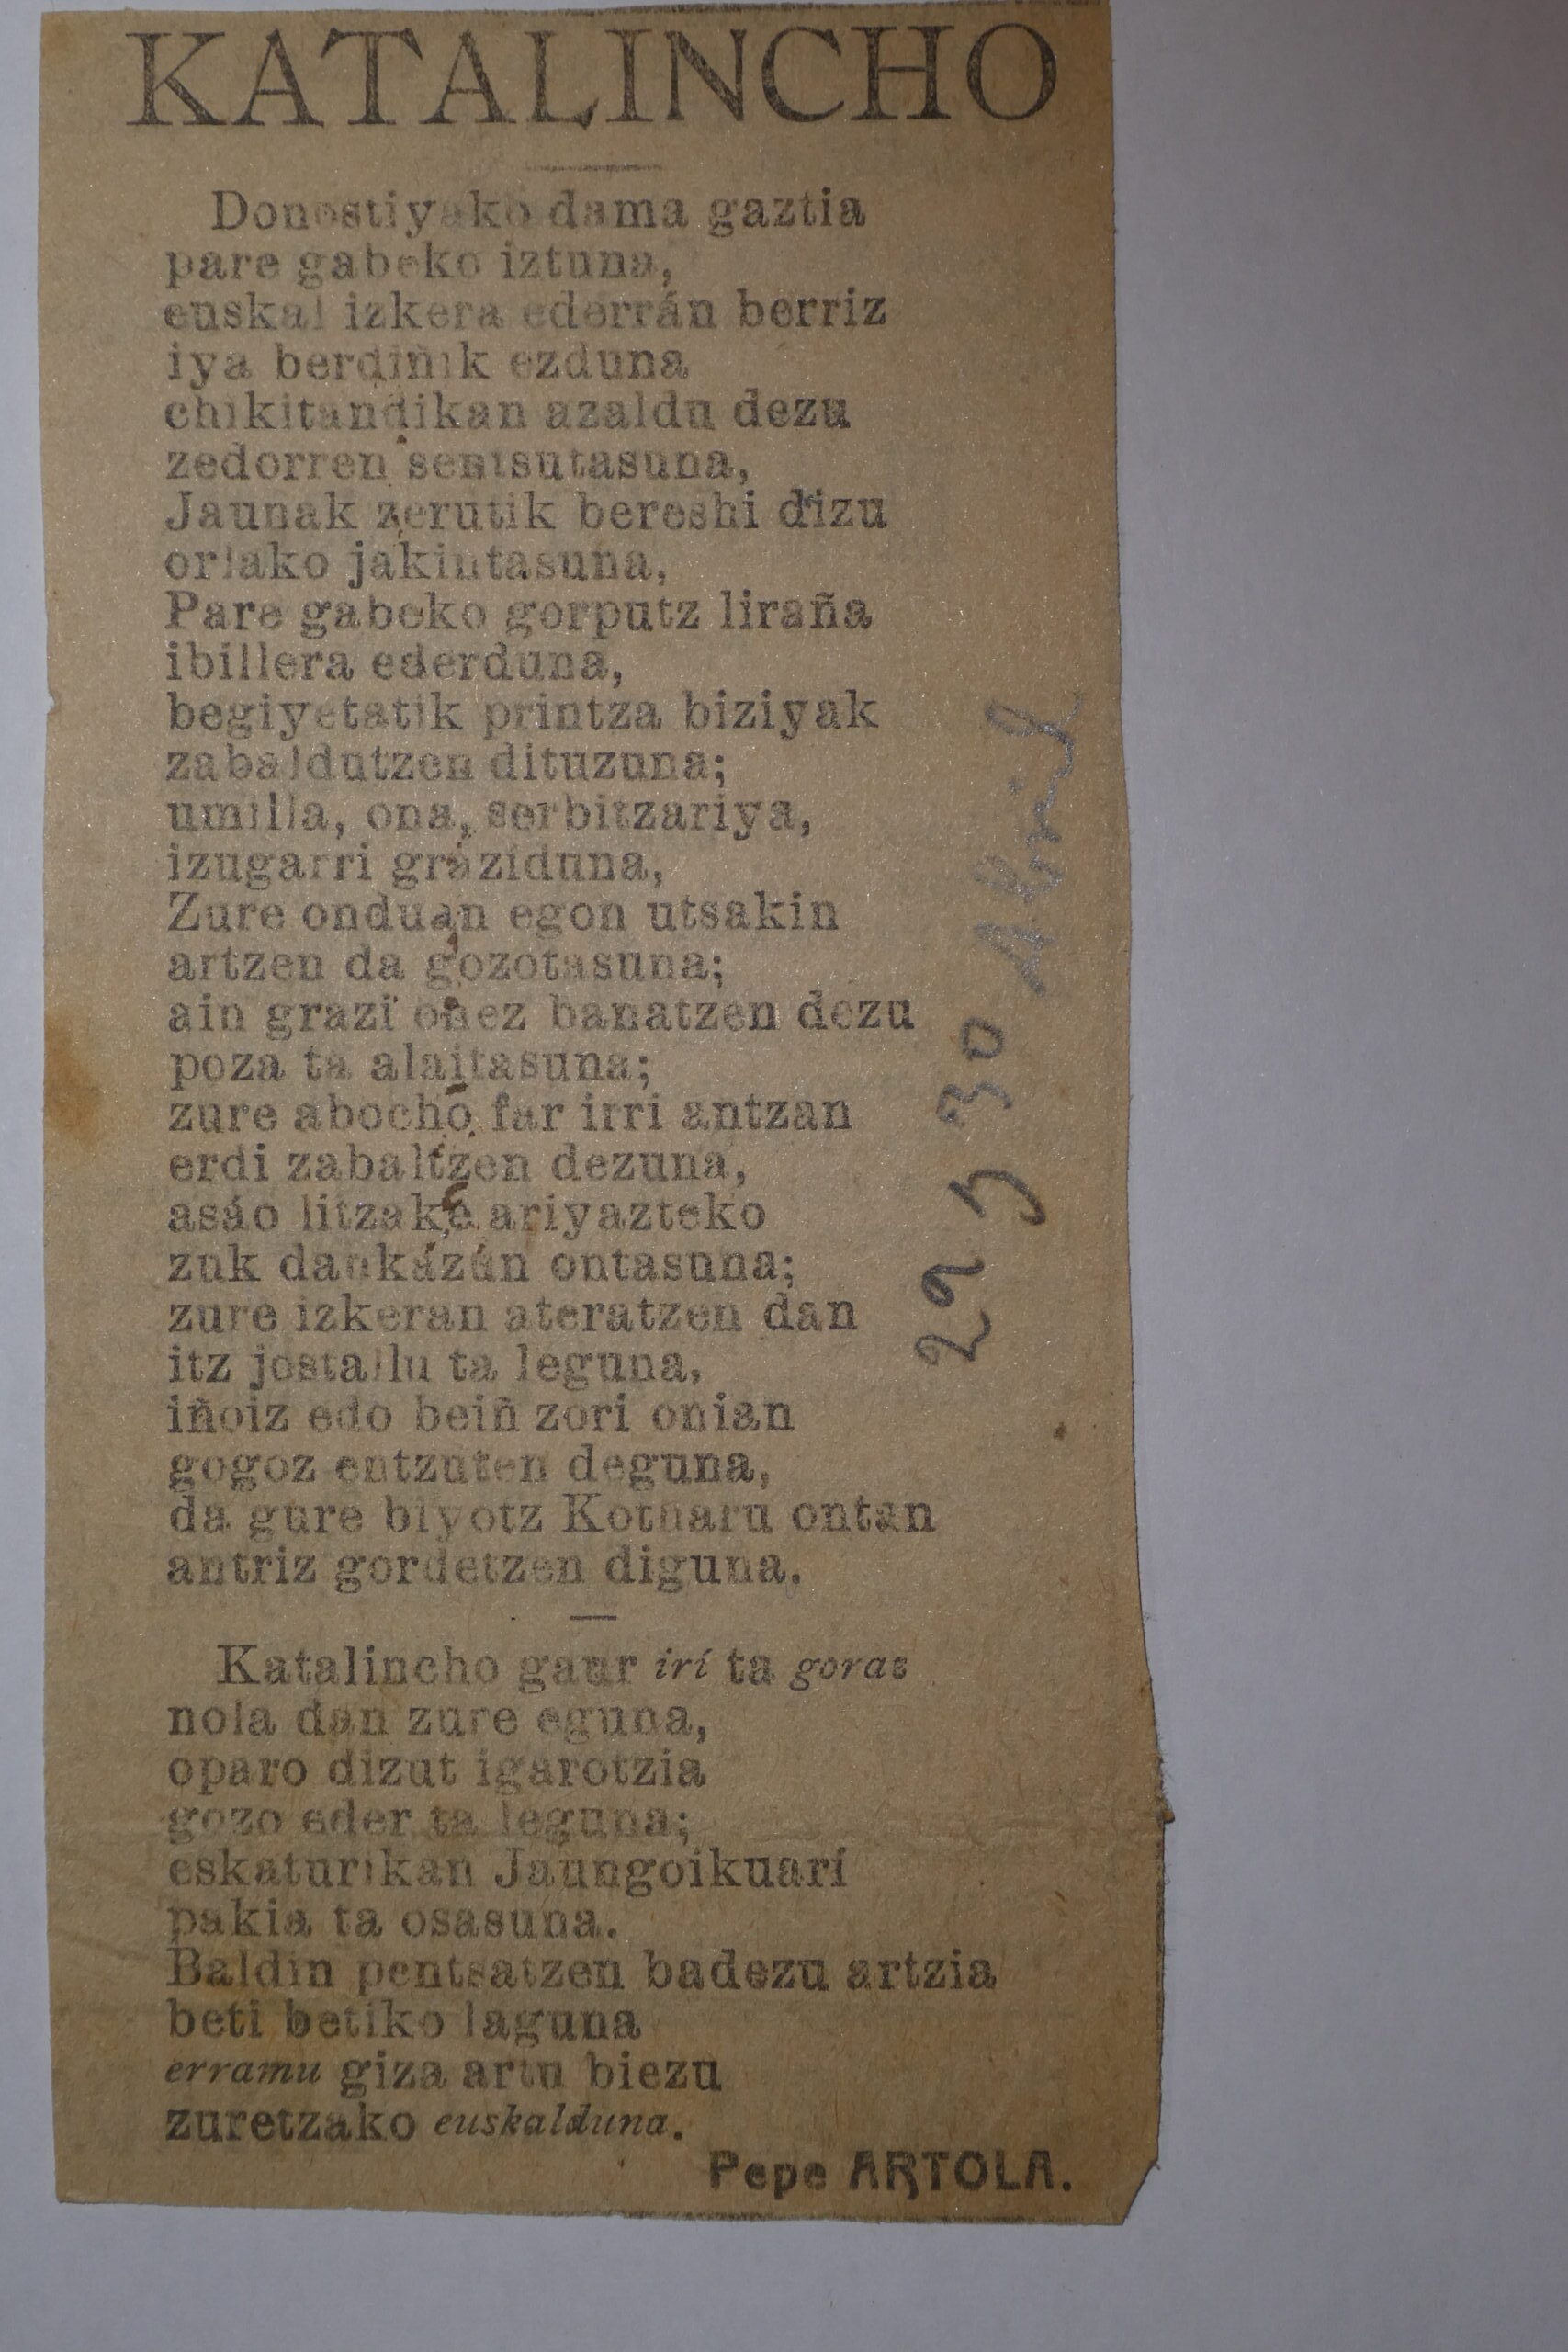 KATALINCHO
Donostiyako dama gaztia
pare gabeko iztuna,
euskal izkera ederrán berriz
iya berdiñik ezduna
chikitandikan azaldu dezu
zedorren sentsutasuna,
Jaunak zerutik bereshi dizu
orlako jakintasuna,
Pare gabeko gorputz liraña
ibillera ederduna,
begiyetatik printza biziyak
zabaldutzen dituzuna;
umilla, ona, serbitzariya,
izugarri gráziduna,
Zure onduan egon utsakin
artzen da gozotasuna;
ain grazi onez banatzen dezu
poza ta alaitasuna;
zure abocho far irri antzan
erdi zabaltzen dezuna,
asáo litzake ariyazteko
zuk daukázún ontasuna;
zure izkeran ateratzen dan
itz jostallu ta leguna,
iñoiz edo beiñ zori onian
gogoz entzuten deguna,
da gure biyotz Kotharu ontan
antriz gordetzen diguna.
Katalincho gaur irí ta goraz
nola dan zure eguna,
oparo dizut igarotzia
gozo eder ta leguna;
eskaturikan Jaungoikuarí
pakia ta osasuna.
Baldin pentsatzen badezu artzia
beti betiko laguna
erramu giza artu biezu
zuretzako euskalduna.
Pepe ARTOLA.
30 Abril